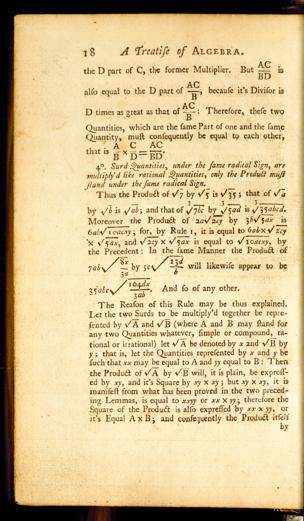 18 A Treatise of ALGEBRA.
the D part of C, the former Multiplier. But AC/BD is
also equal to the D part of AC/B, because it's Divisor is
D times as great as that of AC/B: Therefore, these two
Quantities, which are the same Part of one and the same
Quantity, must consequently be equal to each other,
that is A/B × C/D = AC/BD.
4º. Surd Quantities, under the same radical Sign, are
multiply'd like rational Quantities, only the Product must
stand under the same radical Sign.
Thus the Product of √7 by √5 is √35; that of √a
by √b is √ab; and that of ∛7bc by ∛5ad is ∛35abcd.
Moreover the Product of 2a√2cy by 3b√5ax is
6ab√10acxy; for, by Rule 1, it is equal to 6ab × √2cy
× √5ax, and √2cy × √5ax is equal to √10acxy, by
the Precedent: In the same Manner the Product of
7ab√8x/3a by 5c√13d/b will likewise appear to be
35abc√104dx/3ab. And so of any other.
The Reason of this Rule may be thus explained.
Let the two Surds to be multiply'd together be repre-
sented by √A and √B (where A and B may stand for
any two Quantities whatever, simple or compound, ra-
tional or irrational) let √A be denoted by x and √B by
y; that is, let the Quantities represented by x and y be
such that xx may be equal to A and yy equal to B: Then
the Product of √A by √B will, it is plain, be express-
ed by xy, and it's Square by xy × xy; but xy × xy, it is
manifest from what has been proved in the two preced-
ing Lemmas, is equal to xxyy or xx × yy; therefore the
Square of the Product is also expressed by xx × yy, or
it's Equal A × B; and consequently the Product itself
by